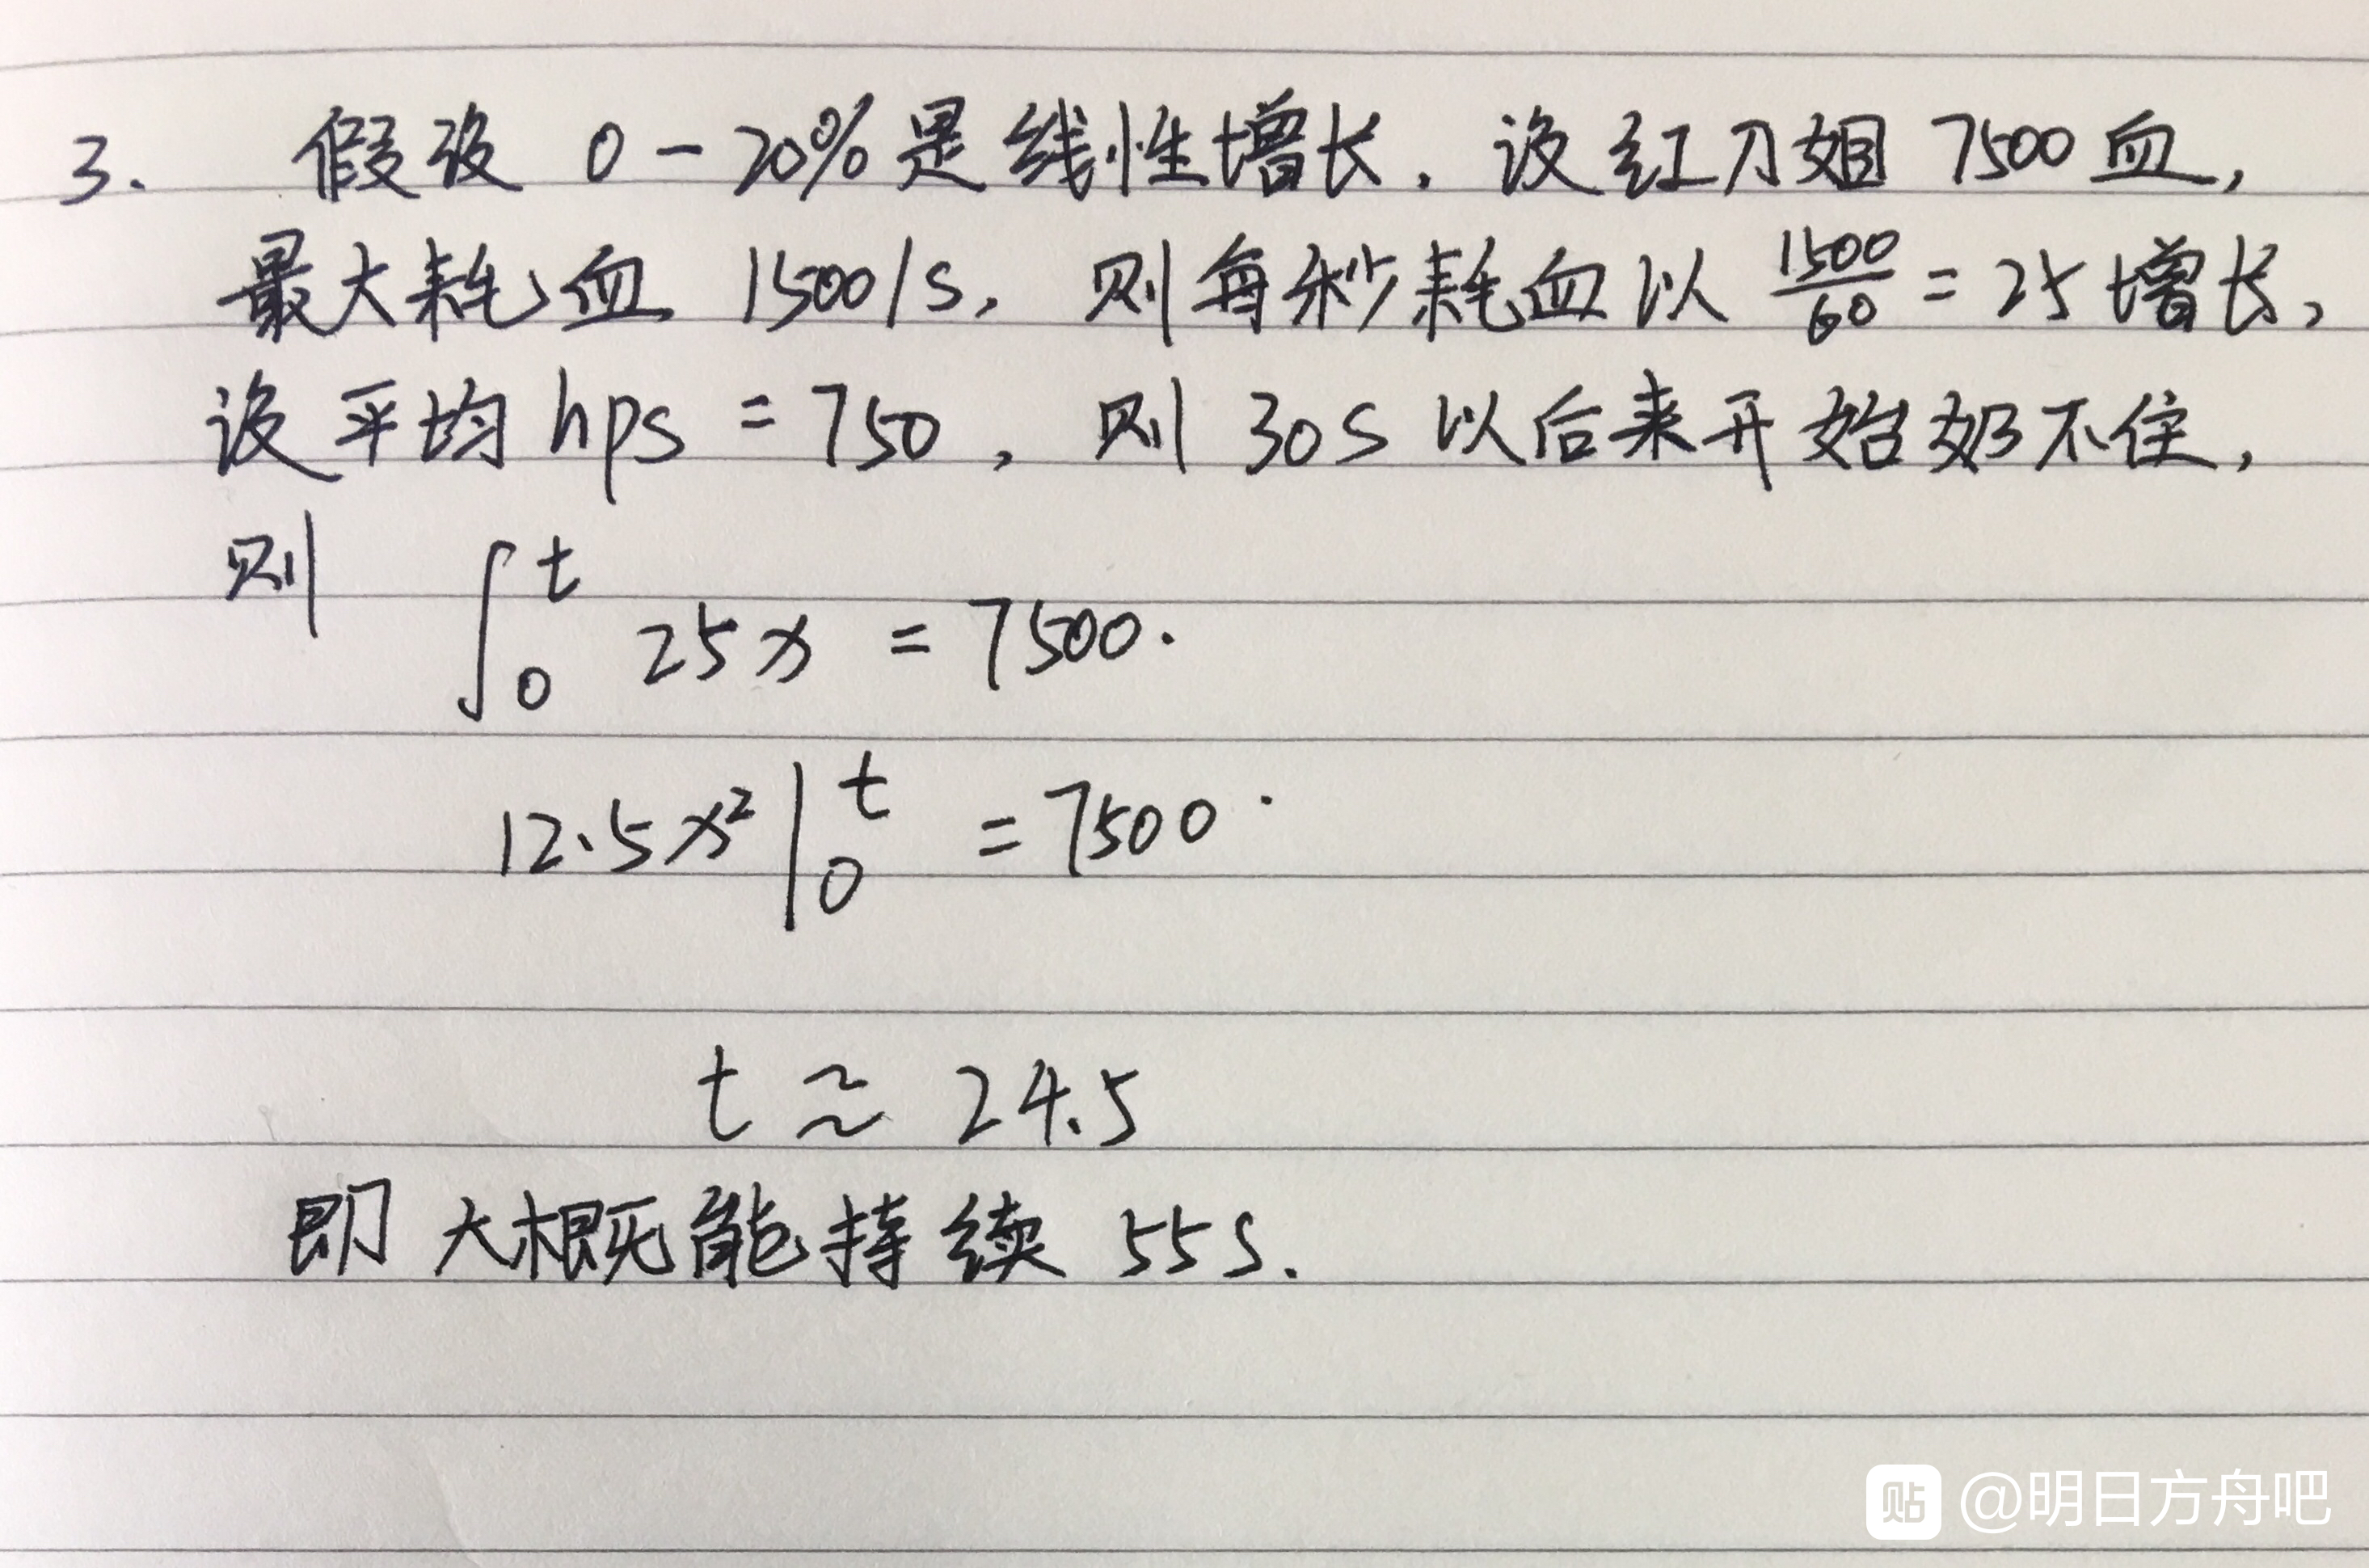 3. 假设 0-20%是线性增长. 设红刀姐 7500血,
最大耗血 1500/s, 则每秒耗血以 1500/60 = 25 增长,
设平均 hps = 750, 则 30s 以后来开始奶不住,
则 ∫₀ᵗ 25x = 7500.
12.5x² |₀ᵗ = 7500.
t ≈ 24.5
即大概能持续 55s.
贴 @明日方舟吧